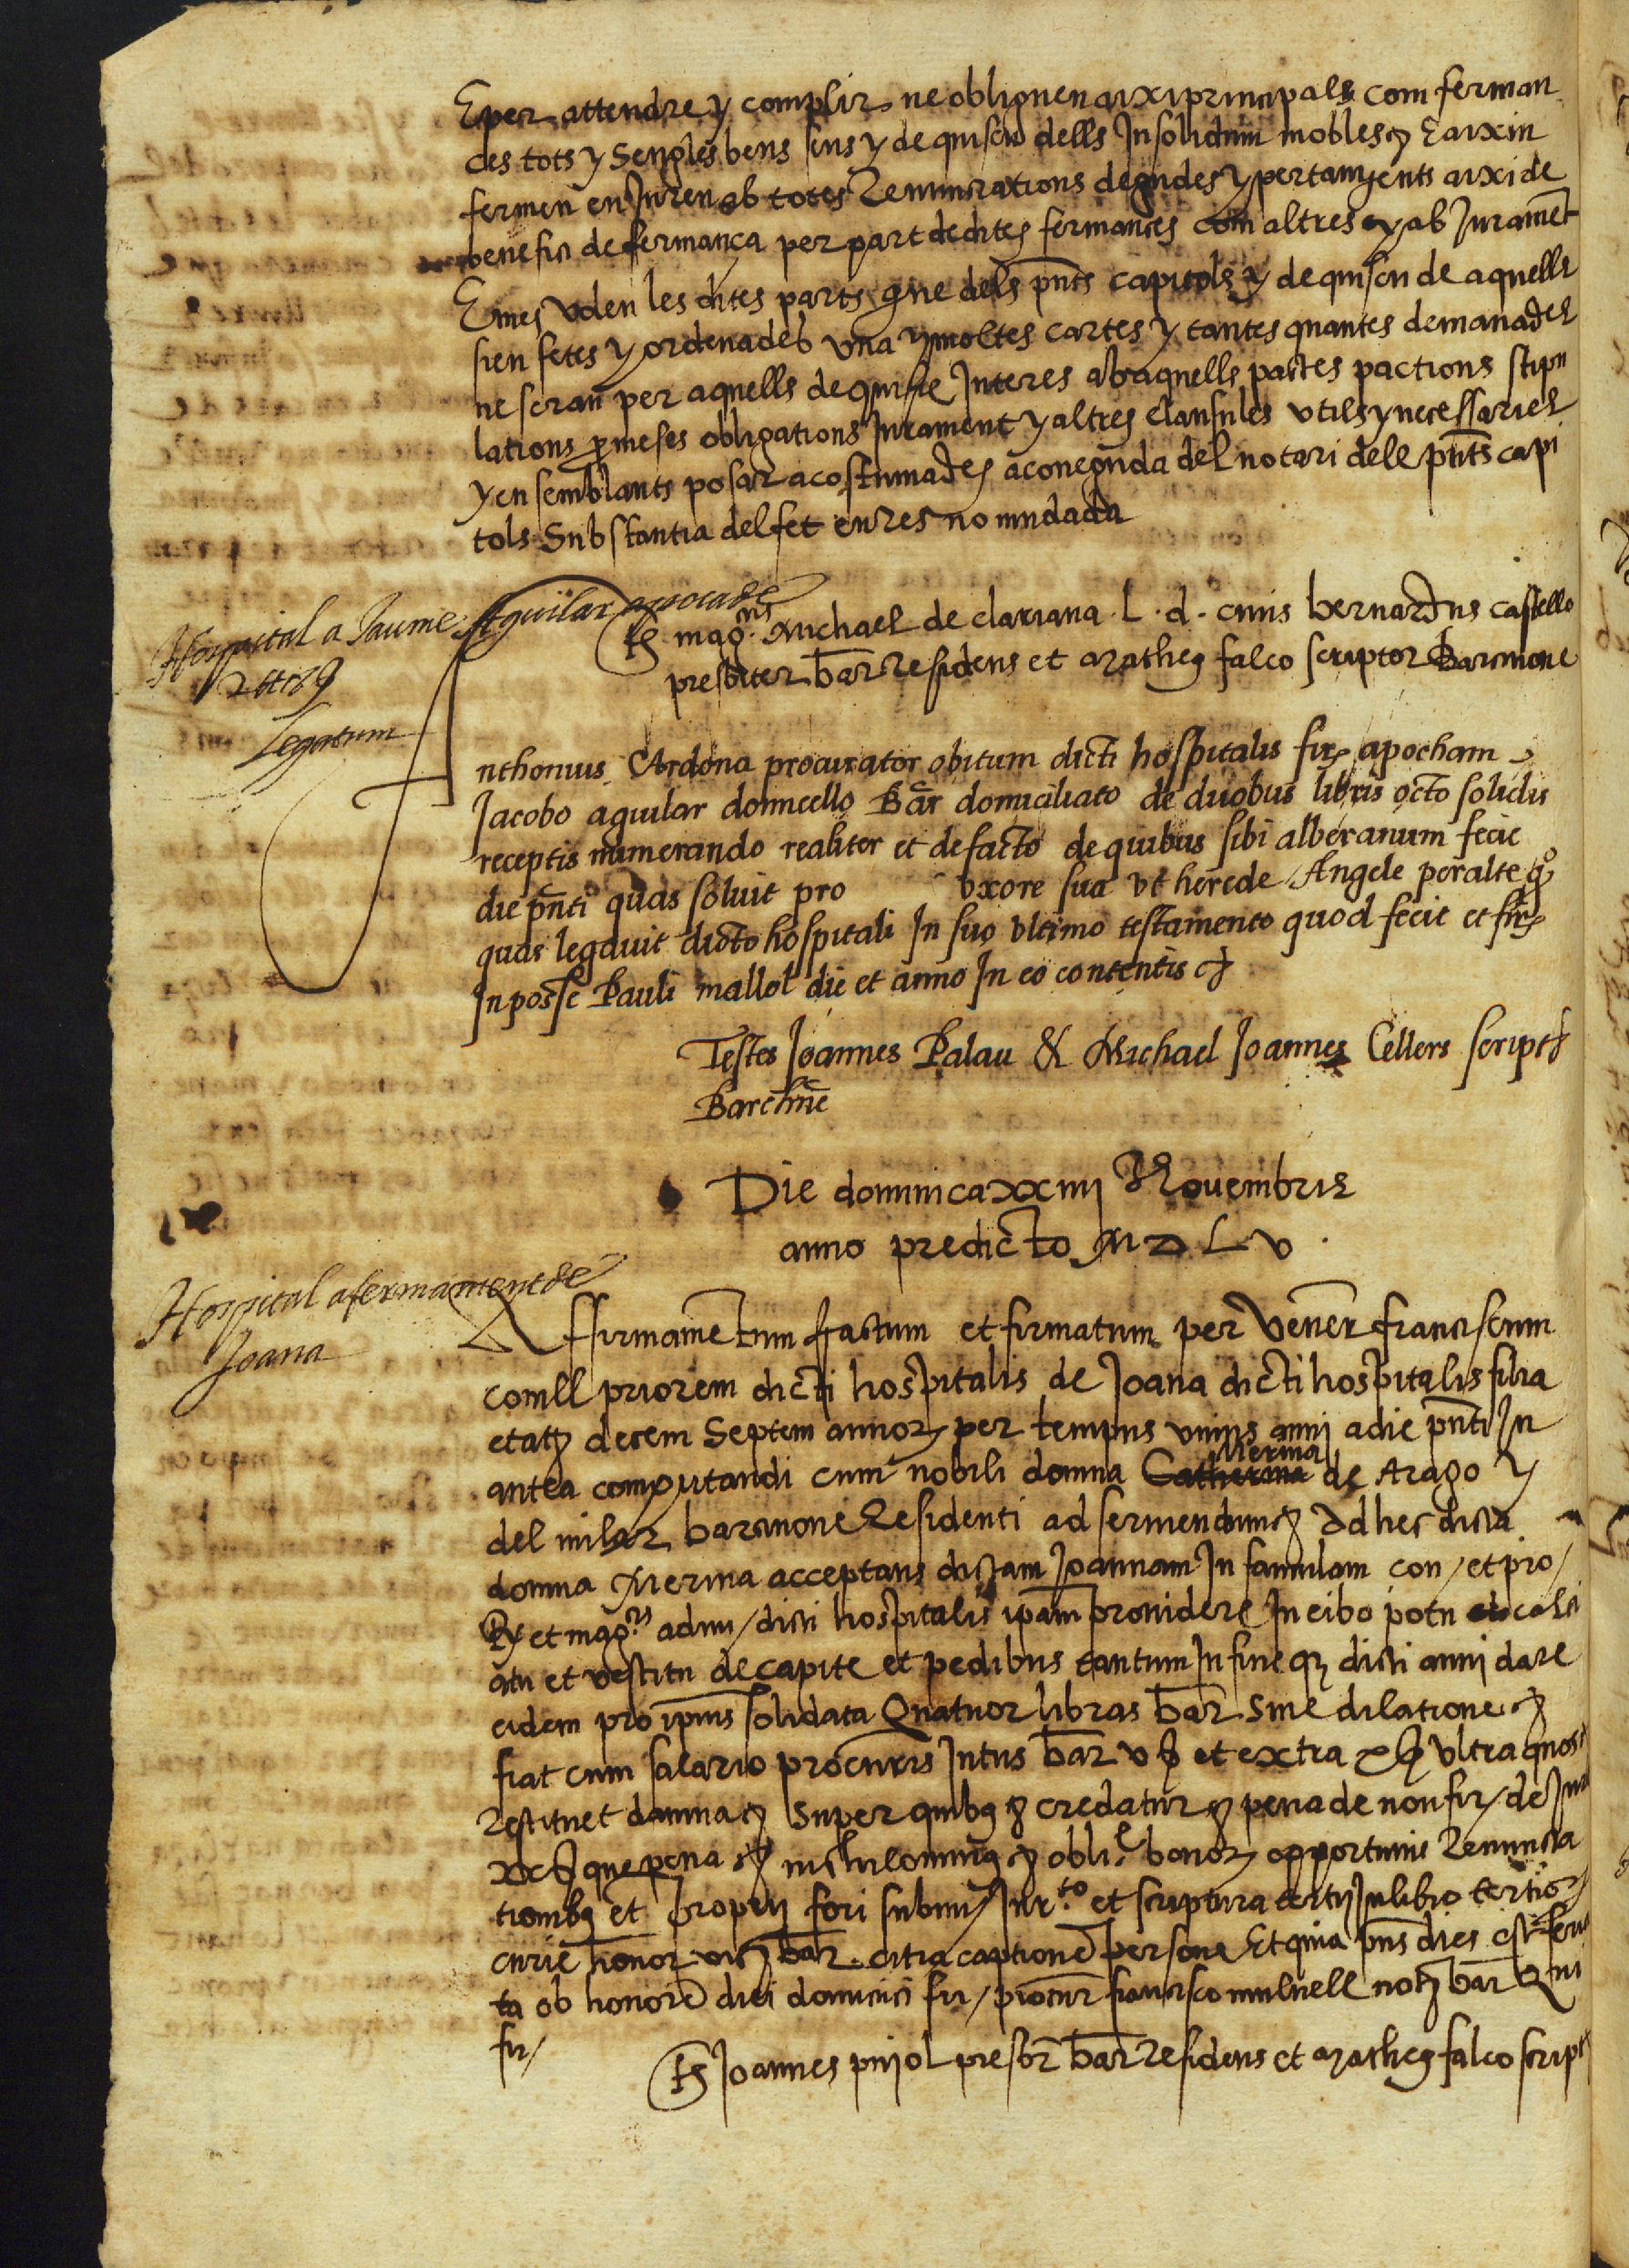 E per attendre y complir ne obliguen aixi principals com ferman
ces tots y sengles bens seus y de quiscu dells Insolidum mobles &c E aixi u
fermen en Juren ab totes Renuntiations degudes y pertanyents aixi de
benefici de fermança per part de dites fermances com altres y ab Jurament
E mes volen les dites parts que dels pnts capitols y de quiscu de aquells
sien fetes y ordenades una y moltes cartes y tantes quantes demanades
ne seran per aquells de qui sie Interes ab aquells pactes pactions stipu
lations pmeses obligations Jurament y altres clausules utils y necessaries
y en semblants posar acostumades a coneguda del notari dels pnts capi
tols Substantia del fet en res no mudada
Hospital a Jaume Aguilar apoca de
2 ll 8 s
Legatum
ts magcs Michael de clariana L. d. civis bernardus castello
presbiter bar Residens et Matheus falco scriptor Barcinone
Anthonius Cardona procurator obitum dicti hospitalis fir apocham
Jacobo aguilar domicello Bar domiciliato de duobus libris octo solidis
receptis numerando realiter et de facto de quibus sibi alberanum fecit
die pnti quas soluit pro uxore sua ut herede Angele peralte qo
quas legavit dicto hospitali In suo ultimo testamento quod fecit et fir
In posse Pauli mallol die et anno In eo contentis &c
Testes Joannes Palau & Michael Joannes Cellers script
Barchne
Die dominica xxiiij Novembris
anno predicto M D L v .
Hospital afermament de
Joana
Affirmamentum factum et firmatum per Vener franciscum
comll priorem dicti hospitalis de Joana dicti hospitalis filia
etatis decem Septem annor per tempus unius anni a die pnti In
antea computandi cum nobili domna Catherina Merina de Arago y
del milar barcinone Residenti ad serviendum &c Ad hec dicta
domna Merina acceptans dictam Joannam In famulam con / et pro /
et magcis admi / dicti hospitalis ipam providere In cibo potu et calci
atu et vestitu de capite et pedibus tantum In fine q dicti anni dare
eidem pro ipius solidata Quatuor libras bar Sine dilatione &c
fiat cum salario procuris Intus bar v s et extra x s Ultra quos
Restituet damna &c Super quibus &c credatur &c pena de non fir / de Jure
que pena &c nichilominus &c obli bonor opportunis Renuncia
tionibus et proprij fori submi / Jurto et scriptura tertij In libro tertior
curie honor vicarij bar citra captione persone Et quia pns dies est feria
ta ob honore diei dominici fir / procur francisco mulnell not bar Qui
fir /
ts Joannes pujol presbr bar Residens et Matheus falco script